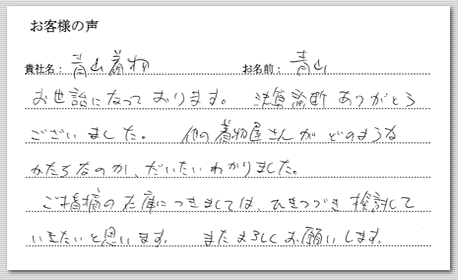 お客様の声
貴社名：青山着物 お名前：青山
お世話になっております。 決算診断ありがとう
ございました。 他の着物屋さんがどのような
かたちなのか、だいたいわかりました。
ご指摘の在庫につきましては、ひきつづき検討して
いきたいと思います。 またよろしくお願いします。